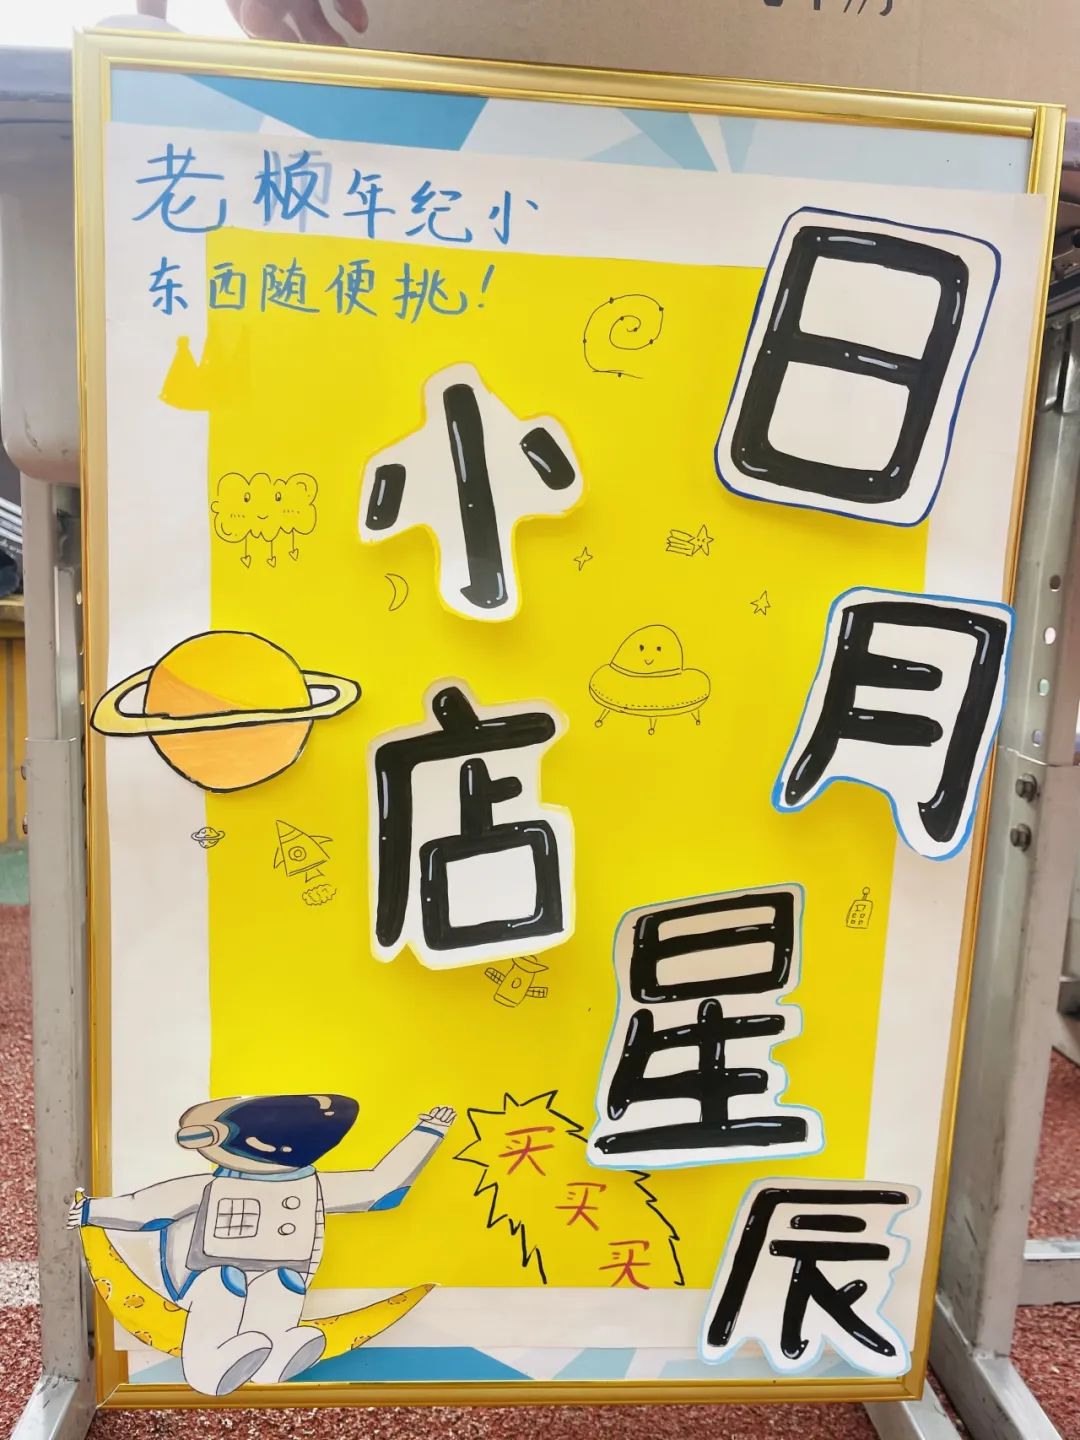 老板年纪小
东西随便挑!
日月星辰
小店
买
买
买